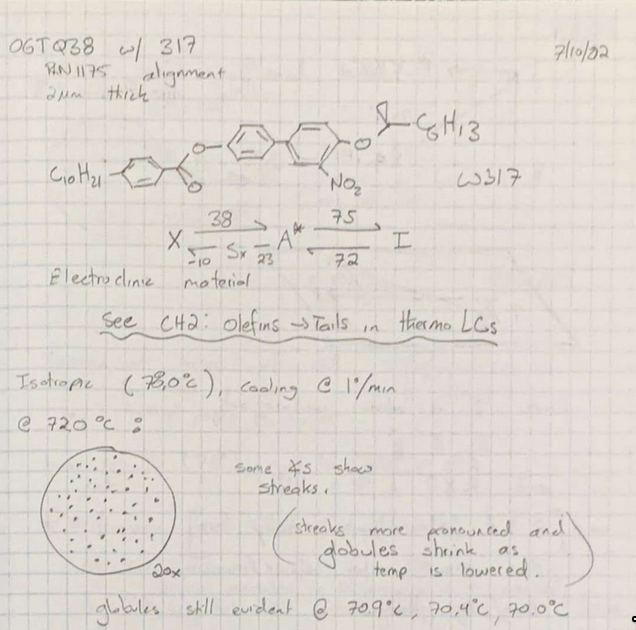 OGTQ38 w/ 317
7/10/02
RN1175 alignment
2μm thick
O
O
C6H13
C10H21
O
NO2
W317
38 75
X Sx A* I
-10 23 72
Electroclinic material
See CH2: Olefins → Tails in thermo LCs
Isotropic (78.0°C), cooling @ 1°/min
@ 72.0°C :
some ∡s show
streaks.
(streaks more pronounced and
globules shrink as
temp is lowered.)
20x
globules still evident @ 70.9°C, 70.4°C, 70.0°C